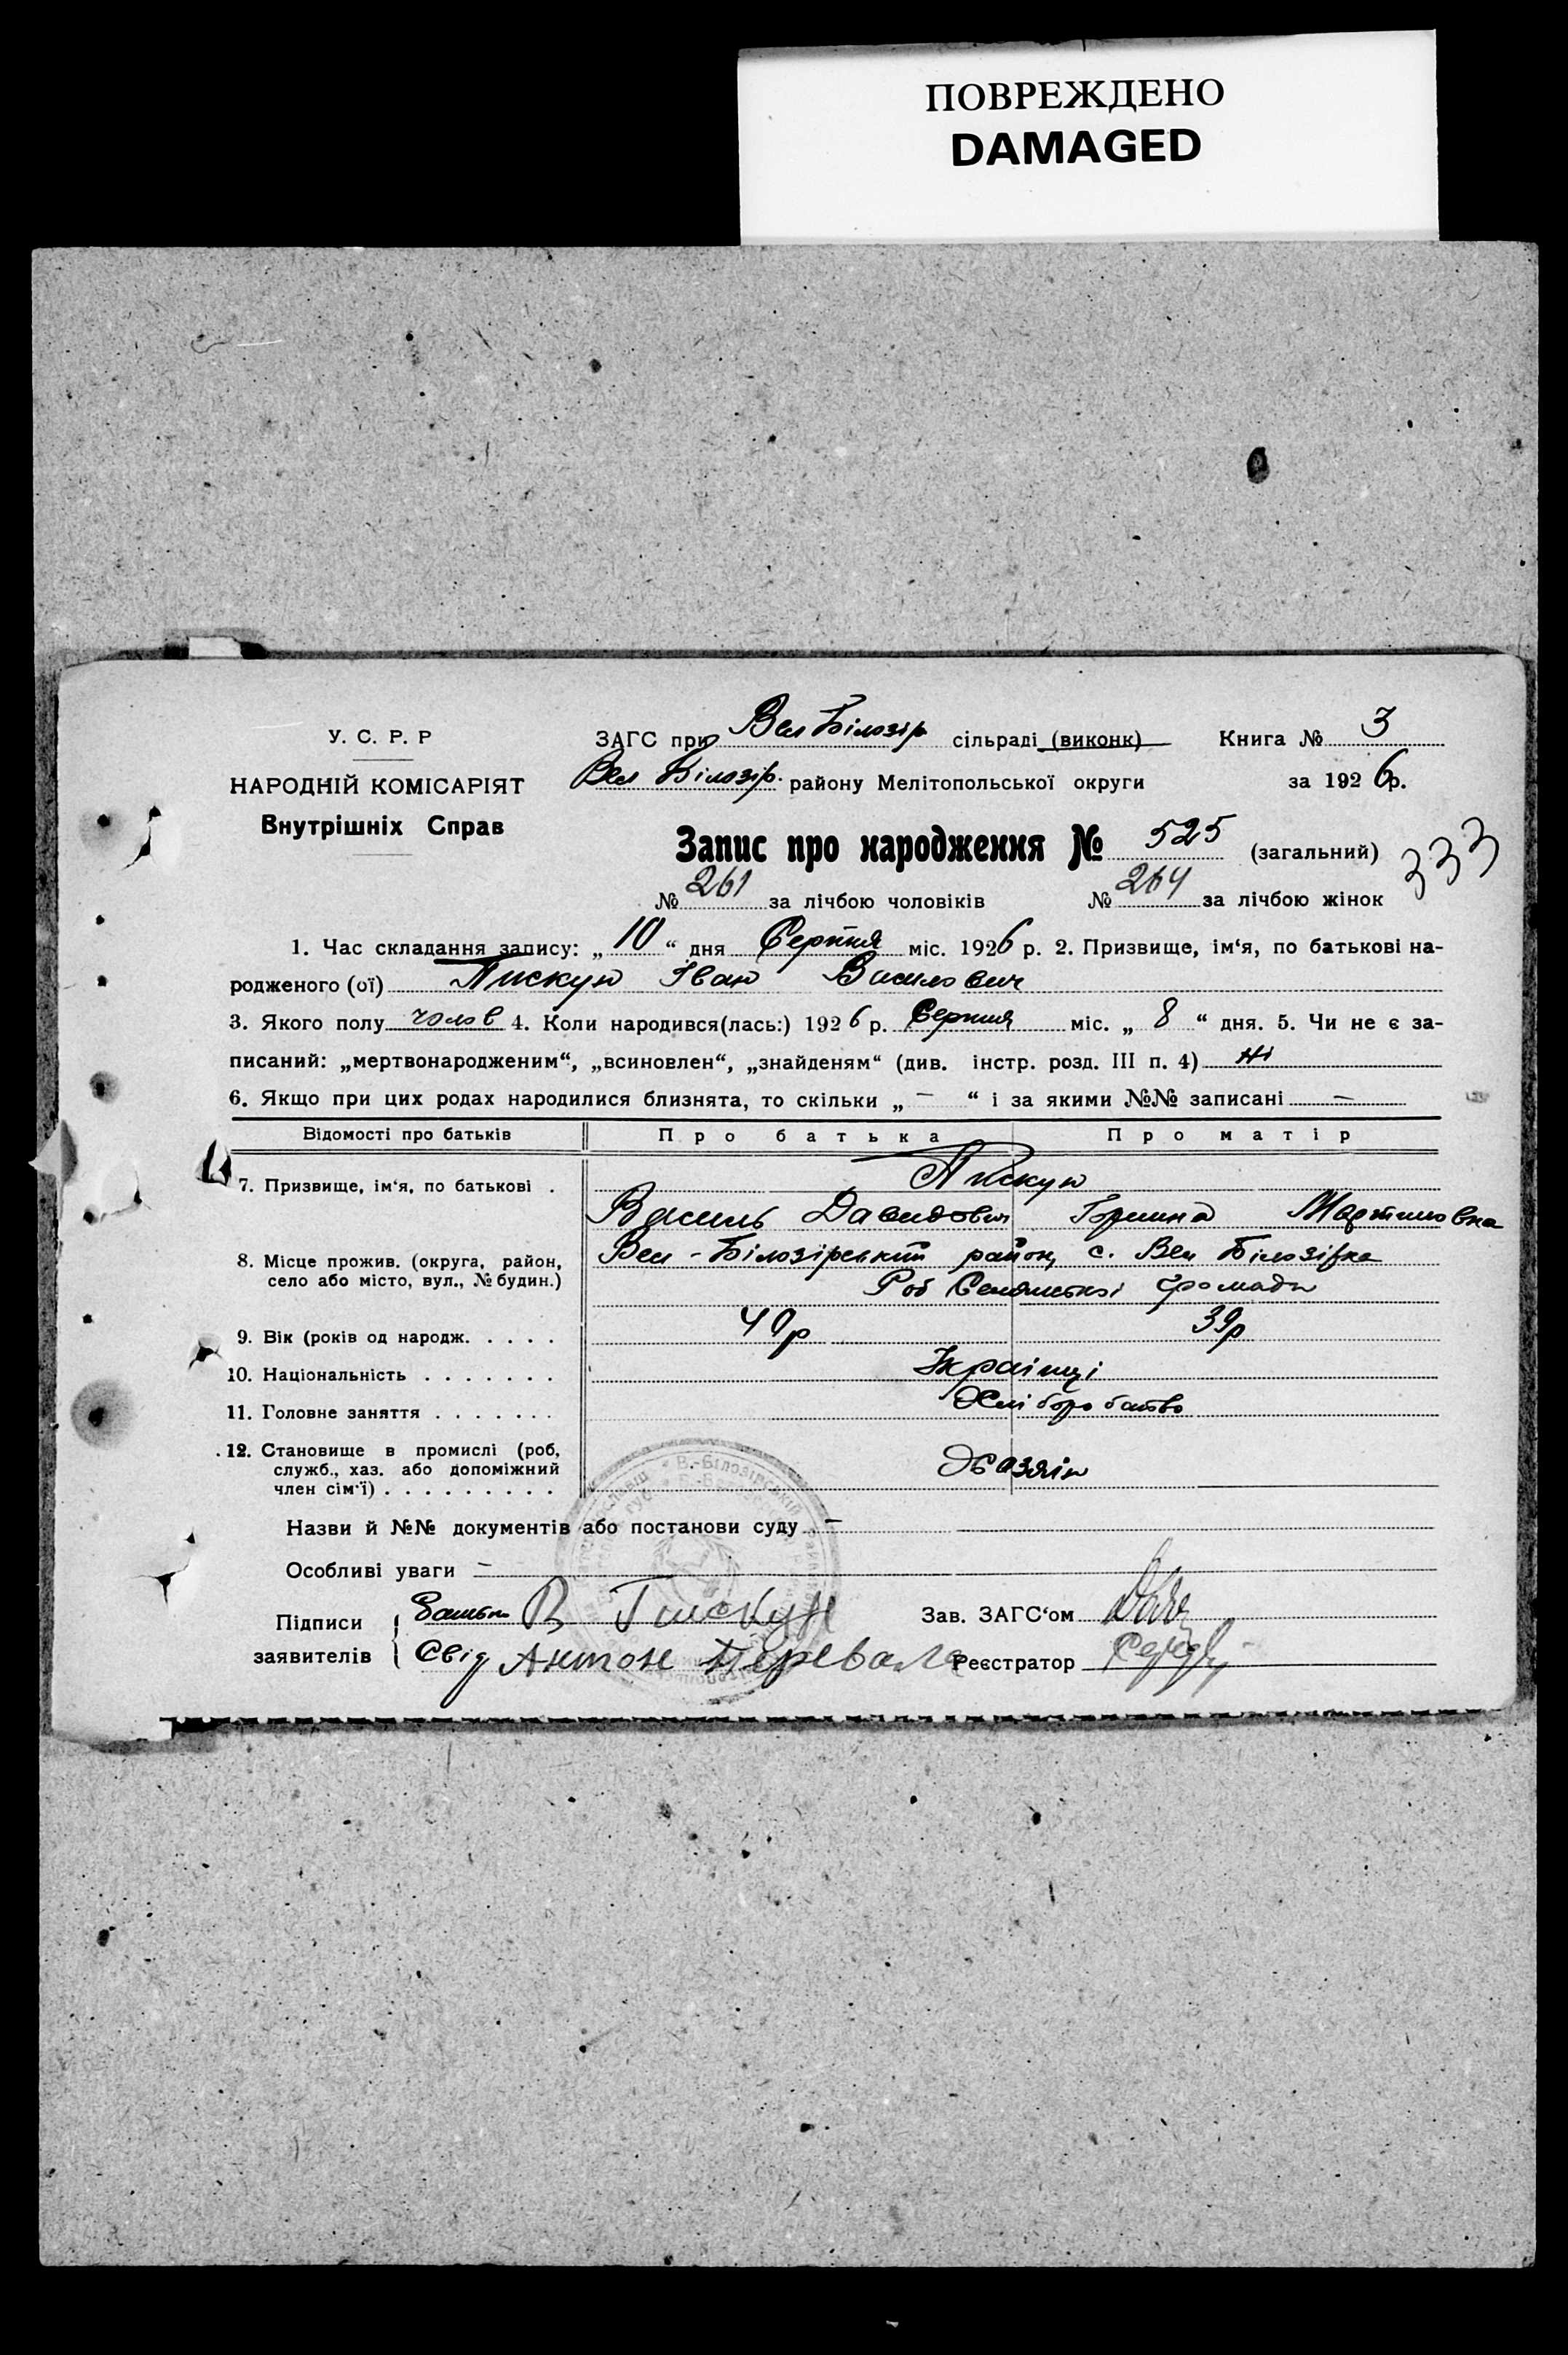 ПОВРЕЖДЕНО
DAMAGED
У. С. Р. Р
НАРОДНІЙ КОМІСАРІЯТ
Внутрішніх Справ
ЗАГС при Вел Білозір сільраді (виконк) Книга № 3
Вел Білозір. району Мелітопольської округи за 1926р.
Запис про народження № 525 (загальний)
333
№ 261 за лічбою чоловіків № 264 за лічбою жінок
1. Час складання запису: „10“ дня Серпня міс. 1926 р. 2. Призвище, ім‘я, по батькові на-
родженого (ої) Пискун Іван Василович
3. Якого полу чолов 4. Коли народився(лась:) 1926 р. Серпня міс. „8“ дня. 5. Чи не є за-
писаний: „мертвонародженим“, „всиновлен“, „знайденям“ (див. інстр. розд. III п. 4) ні
6. Якщо при цих родах народилися близнята, то скільки „ — “ і за якими №№ записані —
Відомості про батьків Про батька Про матір
7. Призвище, ім‘я, по батькові . Пискун
Василь Давидович Мартиновна
8. Місце прожив. (округа, район, село або місто, вул., № будин.) Вел-Білозірський район, с. Вел Білозірка
громади
9. Вік (років од народж. . . . . 40р 39р
10. Національність . . . . . . . Українці
11. Головне заняття . . . . . . . Хліборобство
12. Становище в промислі (роб, служб., хаз. або допоміжний член сім‘ї) . . . . . . . . . Хазяїн
Назви й №№ документів або постанови суду —
Особливі уваги —
Підписи заявителів { батько В Пискун
Свід Антон Перевала
Зав. ЗАГС‘ом
Реєстратор